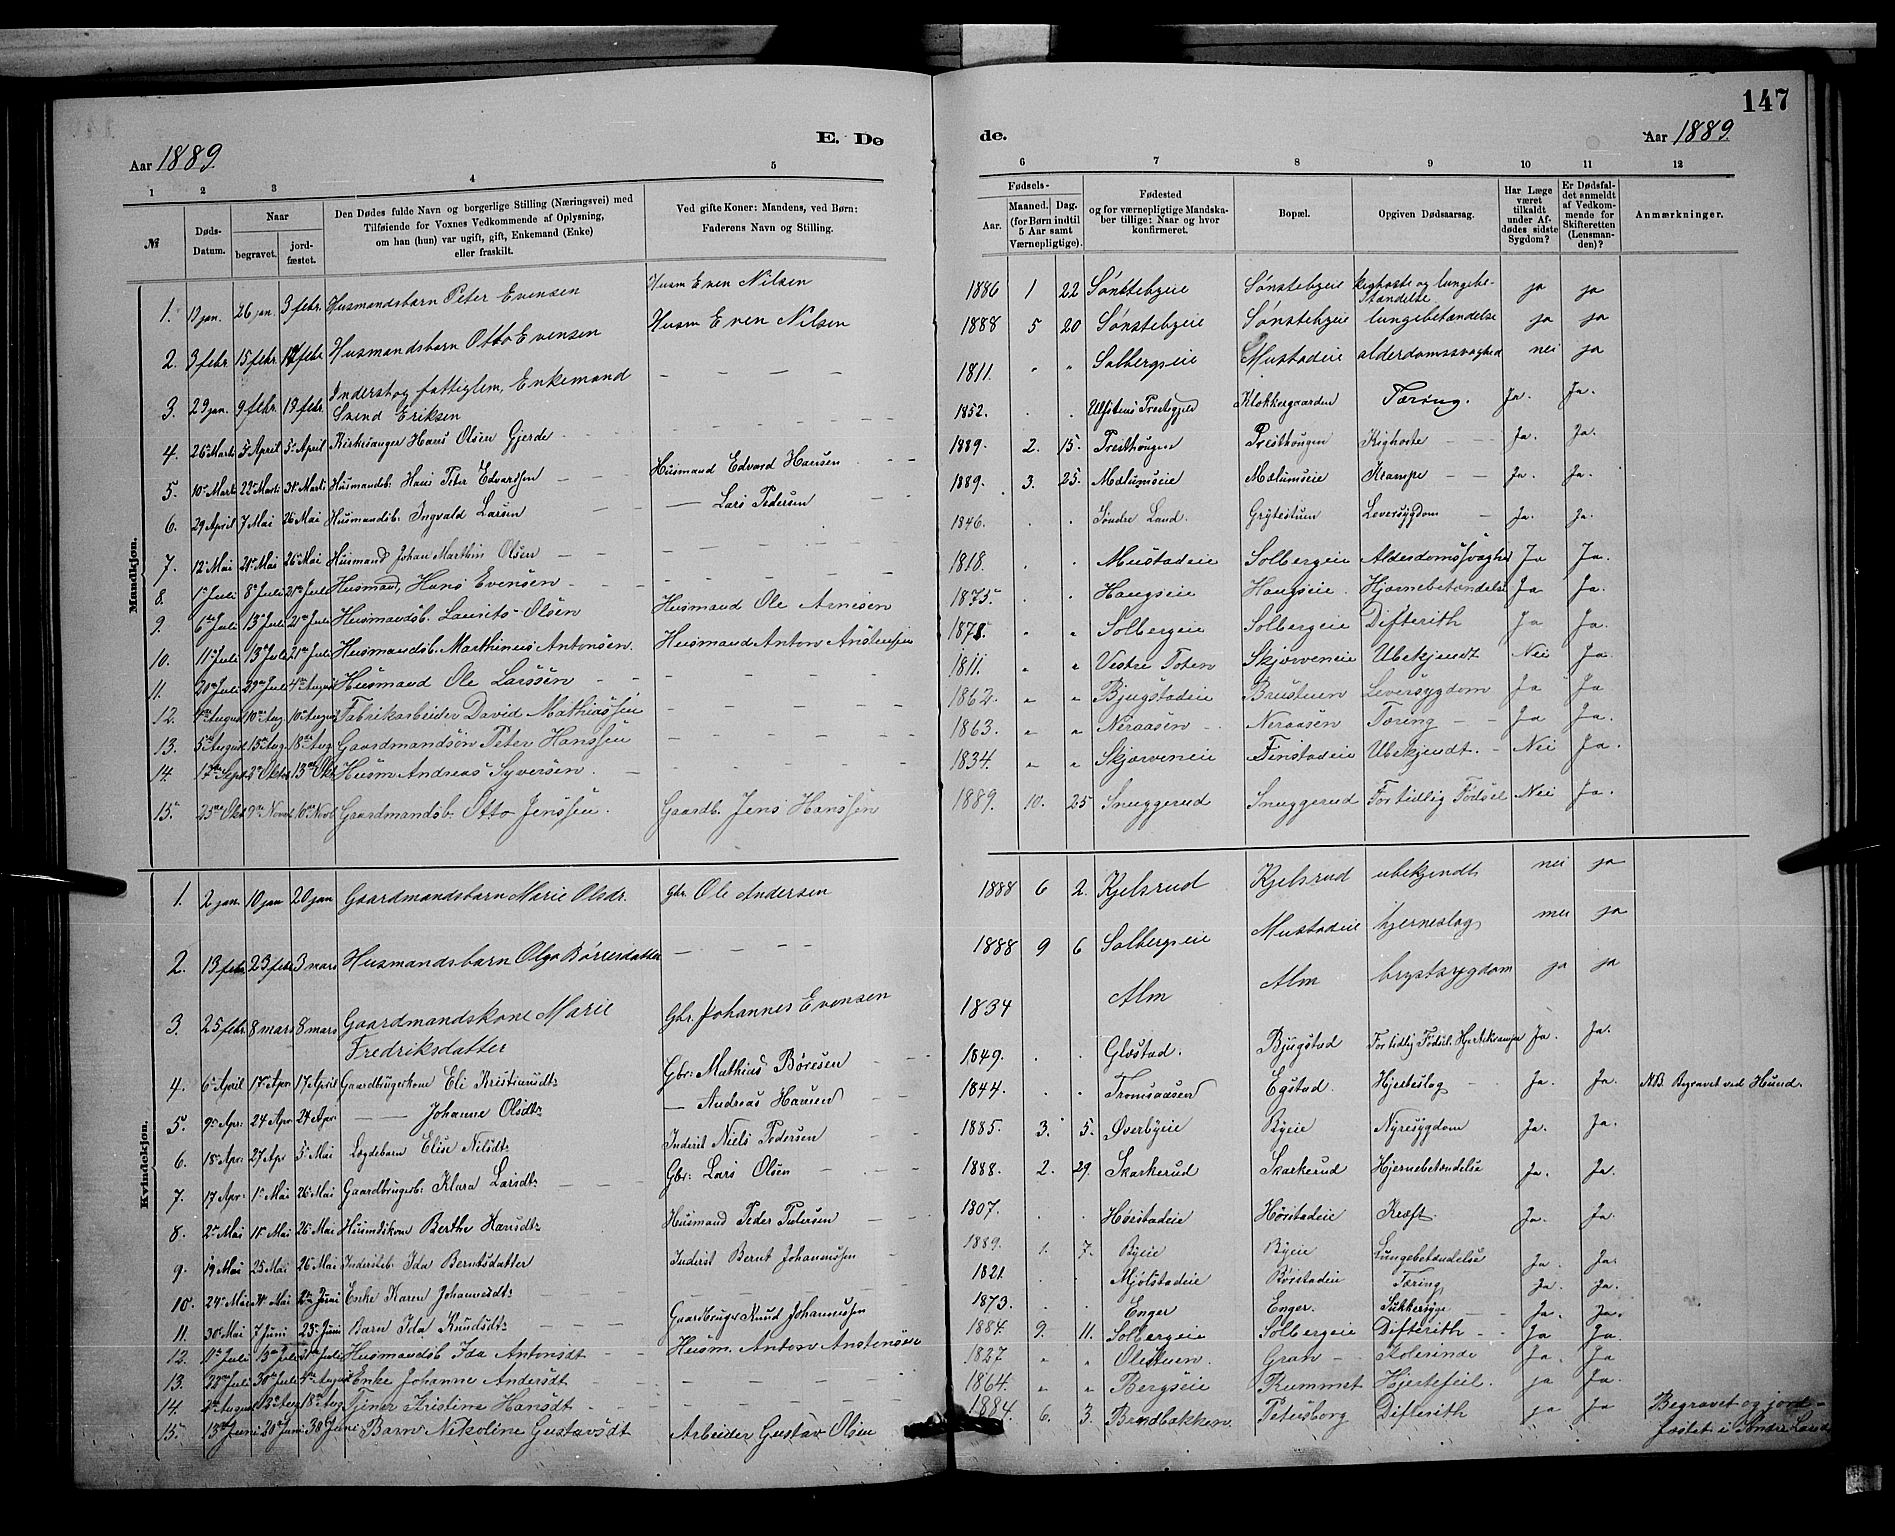 147
E. Dø de.
Aar 1889. Aar 1889.
1 2 3 4 5 6 7 8 9 10 11 12
№ Døds-Datum. Naar begravet. jordfæstet. Den Dødes fulde Navn og borgerlige Stilling (Næringsvei) med Tilføiende for Voxnes Vedkommende af Oplysning, om han (hun) var ugift, gift, Enkemand (Enke) eller fraskilt. Ved gifte Koner: Mandens, ved Børn: Faderens Navn og Stilling. Fødsels- Aar. Maaned. Dag. (for Børn indtil 5 Aar samt Værnepligtige). Fødested og for værnepligtige Mandskaber tillige: Naar og hvor konfirmeret. Bopæl. Opgiven Dødsaarsag. Har Læge været tilkaldt under Afdødes sidste Sygdom? Er Dødsfaldet anmeldt af Vedkommende for Skifteretten (Lensmanden)? Anmærkninger.
Mandkjøn.
1. 19 jan. 26 jan. 3 febr. Husmandsbarn Peter Evensen Husm Even Nilsen 1886 1 22 Sønstebyeie Sønstebyeie kighoste og lungebetændelse ja ja
2. 3 febr. 15 febr. febr Husmandsbarn Otto Evensen Husm Even Nilsen 1888 5 20 Sønstebyeie Sønstebyeie lungebetændelse ja ja
3. 29 jan. 9 febr. 19 febr. Inderst og fattiglem, Enkemand Svend Eriksen — — — — 1811. " " Solbergseie Mustadeie alderdomssvaghed nei ja
4. 26 Marts 5 April 5 April Kirkesanger Hans Olsen Gjerde 1852. Ulfstens Præstegjeld Klokkergaarden Tæring. Ja. Ja.
5. 10 Marts 22 Marts 31 Marts Husmandsb. Hans Peter Edvardsen Husmand Edvard Hansen 1889. 2. 15. Presthaugen Presthaugen Kighoste Ja. Ja.
6. 29 April 7 Mai 26 Mai Husmandsb. Ingvald Larsen — Lars Pedersen 1889. 3. 25. Mælumseie Mælumseie Krampe Ja. Ja.
7. 12 Mai 20 Mai 26 Mai Husmand Johan Marthin Olsen 1846. Søndre Land. Grytestuen Leversygdom Ja. Ja.
8. 1 Juli 8 Juli 21 Juli Husmand, Hans Evensen 1818. Mustadeie Solbergeie Alderdomssvaghed Ja Ja.
9. 6 Juli 13 Juli 21 Juli Husmandsb. Laurits Olsen Husmand Ole Arnesen 1875. Haugseie Haugseie. Hjernebetændelse Ja Ja.
10. 11 Juli 13 Juli 21 Juli Husmandsb. Marthinus Antonsen. Husmand Anton Anstensen " " Solbergeie Solbergeie Difterith Ja Ja.
11. 20 Juli 29 Juli 4 August Husmand Ole Larssen 1811. " " Vestre Toten Skjærveneie Ubekjendt Nei Ja.
12. 4 August 10 Aug. 10 August Fabrikarbeider David Mathiassen 1862. " " Bjugstadeie Brustuen Leversygdom Ja Ja
13. 5 August 15 Aug. 18 Aug Gaardmandsøn Peter Hanssen 1863. " " Neraasen Neraasen Tæring Ja Ja.
14. 17 Sept. 2 Oktb 13 Okt. Husm Andreas Syversen. 1834. " " Skjærveneie Finstadeie Ubekjendt. Nei Ja.
15. 25 Okt 9 Novb 10 Novb Gaardmandsb. Otto Jenssen. Gaardb. Jens Hanssen 1889. 10. 25 Snuggerud Snuggerud For tidlig Fødsel Nei Ja.
Kvindekjøn.
1. 2 jan. 10 jan 20 jan Gaardmandsbarn Marie Olsdr. Gbr. Ole Andersen 1888 6 2. Kjelsrud Kjelsrud ubekjendt nei ja
2. 13 febr. 23 febr. 3 mars Husmandsbarn Olga Børresdatter — — — — 1888 9 6 Solbergseie Mustadeie hjerneslag nei ja
3. 25 febr. 8 mars 8 mars Gaardmandskone Marie Fredriksdatter Gbr. Johannes Evensen 1834 Alm Alm brystsygdom ja ja
4. 6 April 17 Apr 17 April Gaardbrugerkone Eli Kristiansdtr Gbr: Mathias Børesen 1849. Glæstad. Bjugstad For tidlig Fødsel. Hjertekrampe Ja. Ja.
5. 9 Apr: 24 Apr 24 Apr — Johanne Olsdtr — Andreas Hansen 1844. Tromsaasen Egstad. Hjerteslag Ja. Ja. N.B. Begravet ved Hund.
6. 18 Apr: 27 Apr 5 Mai Lægdebarn Elise Nilsdtr Inderst Niels Pedersen 1885. 3. 5. Øverbyeie Byeie Nyresygdom Ja. Ja.
7. 17 Apr: 1 Mai 26 Mai Gaardbrugerb: Klara Larsdtr Gbr: Lars Olsen 1888. 2. 29. Skarkerud Skarkerud Hjernebetændelse Ja. Ja.
8. 2 Mai 11 Mai 26 Mai Husmdskone Berthe Hansdtr Husmand Peder Pedersen 1807. Hørstadeie Hørstadeie Kræft. Ja. Ja.
9. 19 Mai 25 Mai 26 Mai Indersteb: Ida Berntsdatter Inderst Bernt Johannessen 1889. 1. 7. Byeie Byeie Lungebetændelse Ja. Ja.
10. 24 Mai 31 Mai Juni Enke Karen Johannesdtr 1821 Mjølstadeie Børstadeie Tæring Ja. Ja.
11. 30 Mai 7 Juni 23 Juni Barn Ida Knudsdtr Gaardbruger Knud Johannessen 1873. Enger Enger. Sukkersyge Ja. Ja.
12. 11 Juli 13 Juli 21 Juli Husmandsb. Ida Antonsdt Husm. Anton Anstensen 1884. 9. 11. Solbergeie Solbergeie Difterith Ja Ja.
13. 22 Juli 30 Juli 4 August Enke Johanne Andersdt 1827 " " Olestuen. Gran Kolerinde Ja. Ja
14. August Aug 18 Aug. Tjener Kristine Hansdt 1864. " " Bergseie Rummet Hjertefeil. ja Ja.
15. 13 Juni 20 Juni 30 Juni Barn Nikoline Gustavsdt Arbeider Gustav Olsen 1884. 6. 3. Brndbakken Petersborg Difterith ja ja Begravet og jordfæstet i Søndre Land